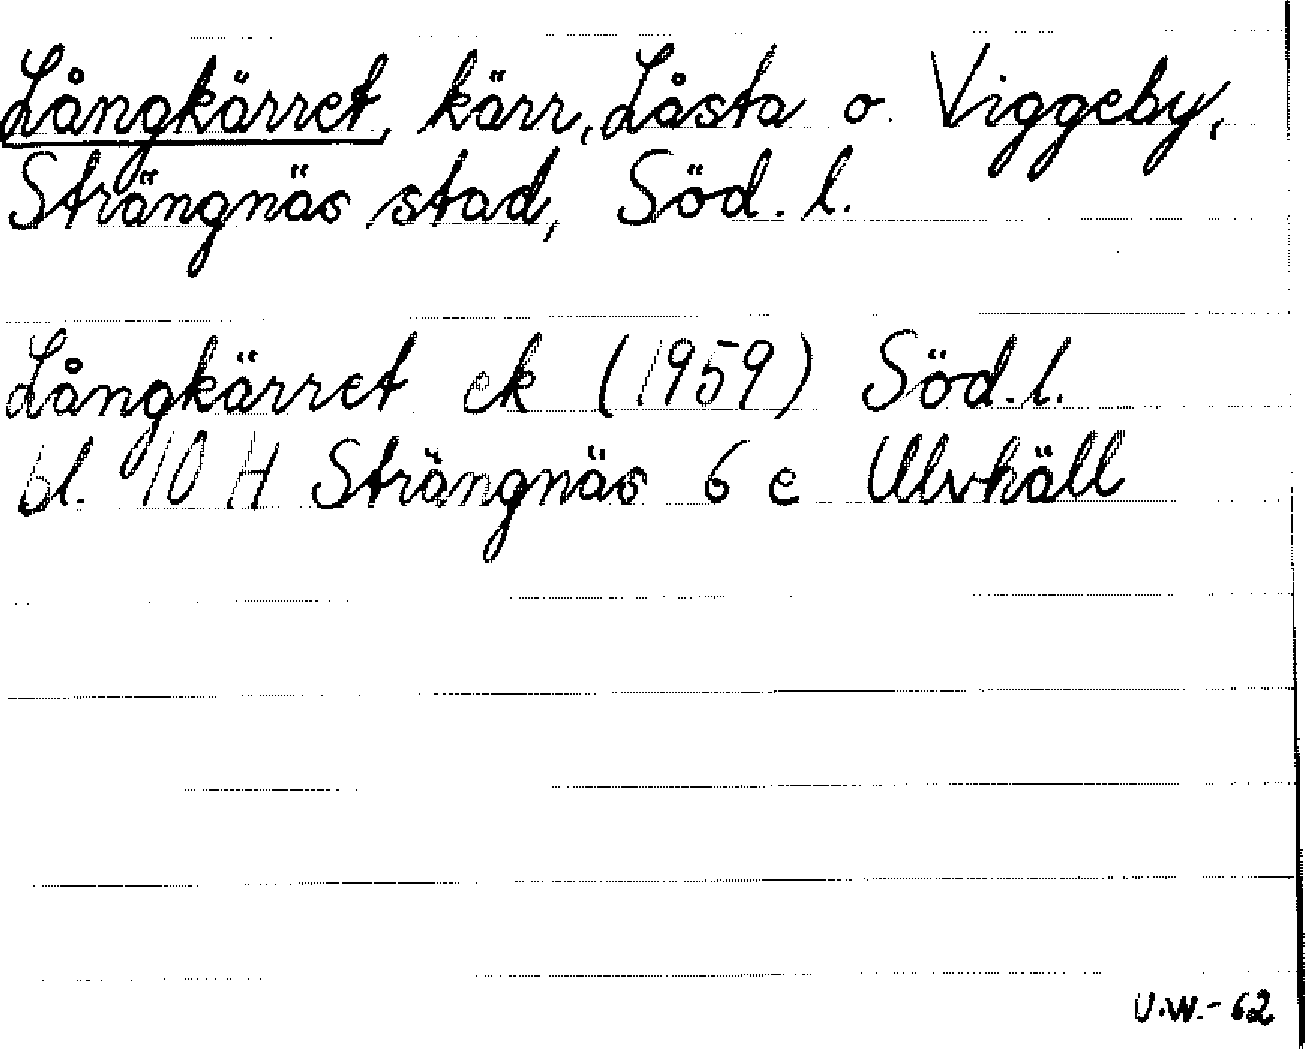 Långkärret, kärr, Låsta o. Viggeby,
Strängnäs stad, Söd. l.
Långkärret ek (1959) Söd. l.
bl. 10 H Strängnäs 6 e Ulvhäll
U.W.-62